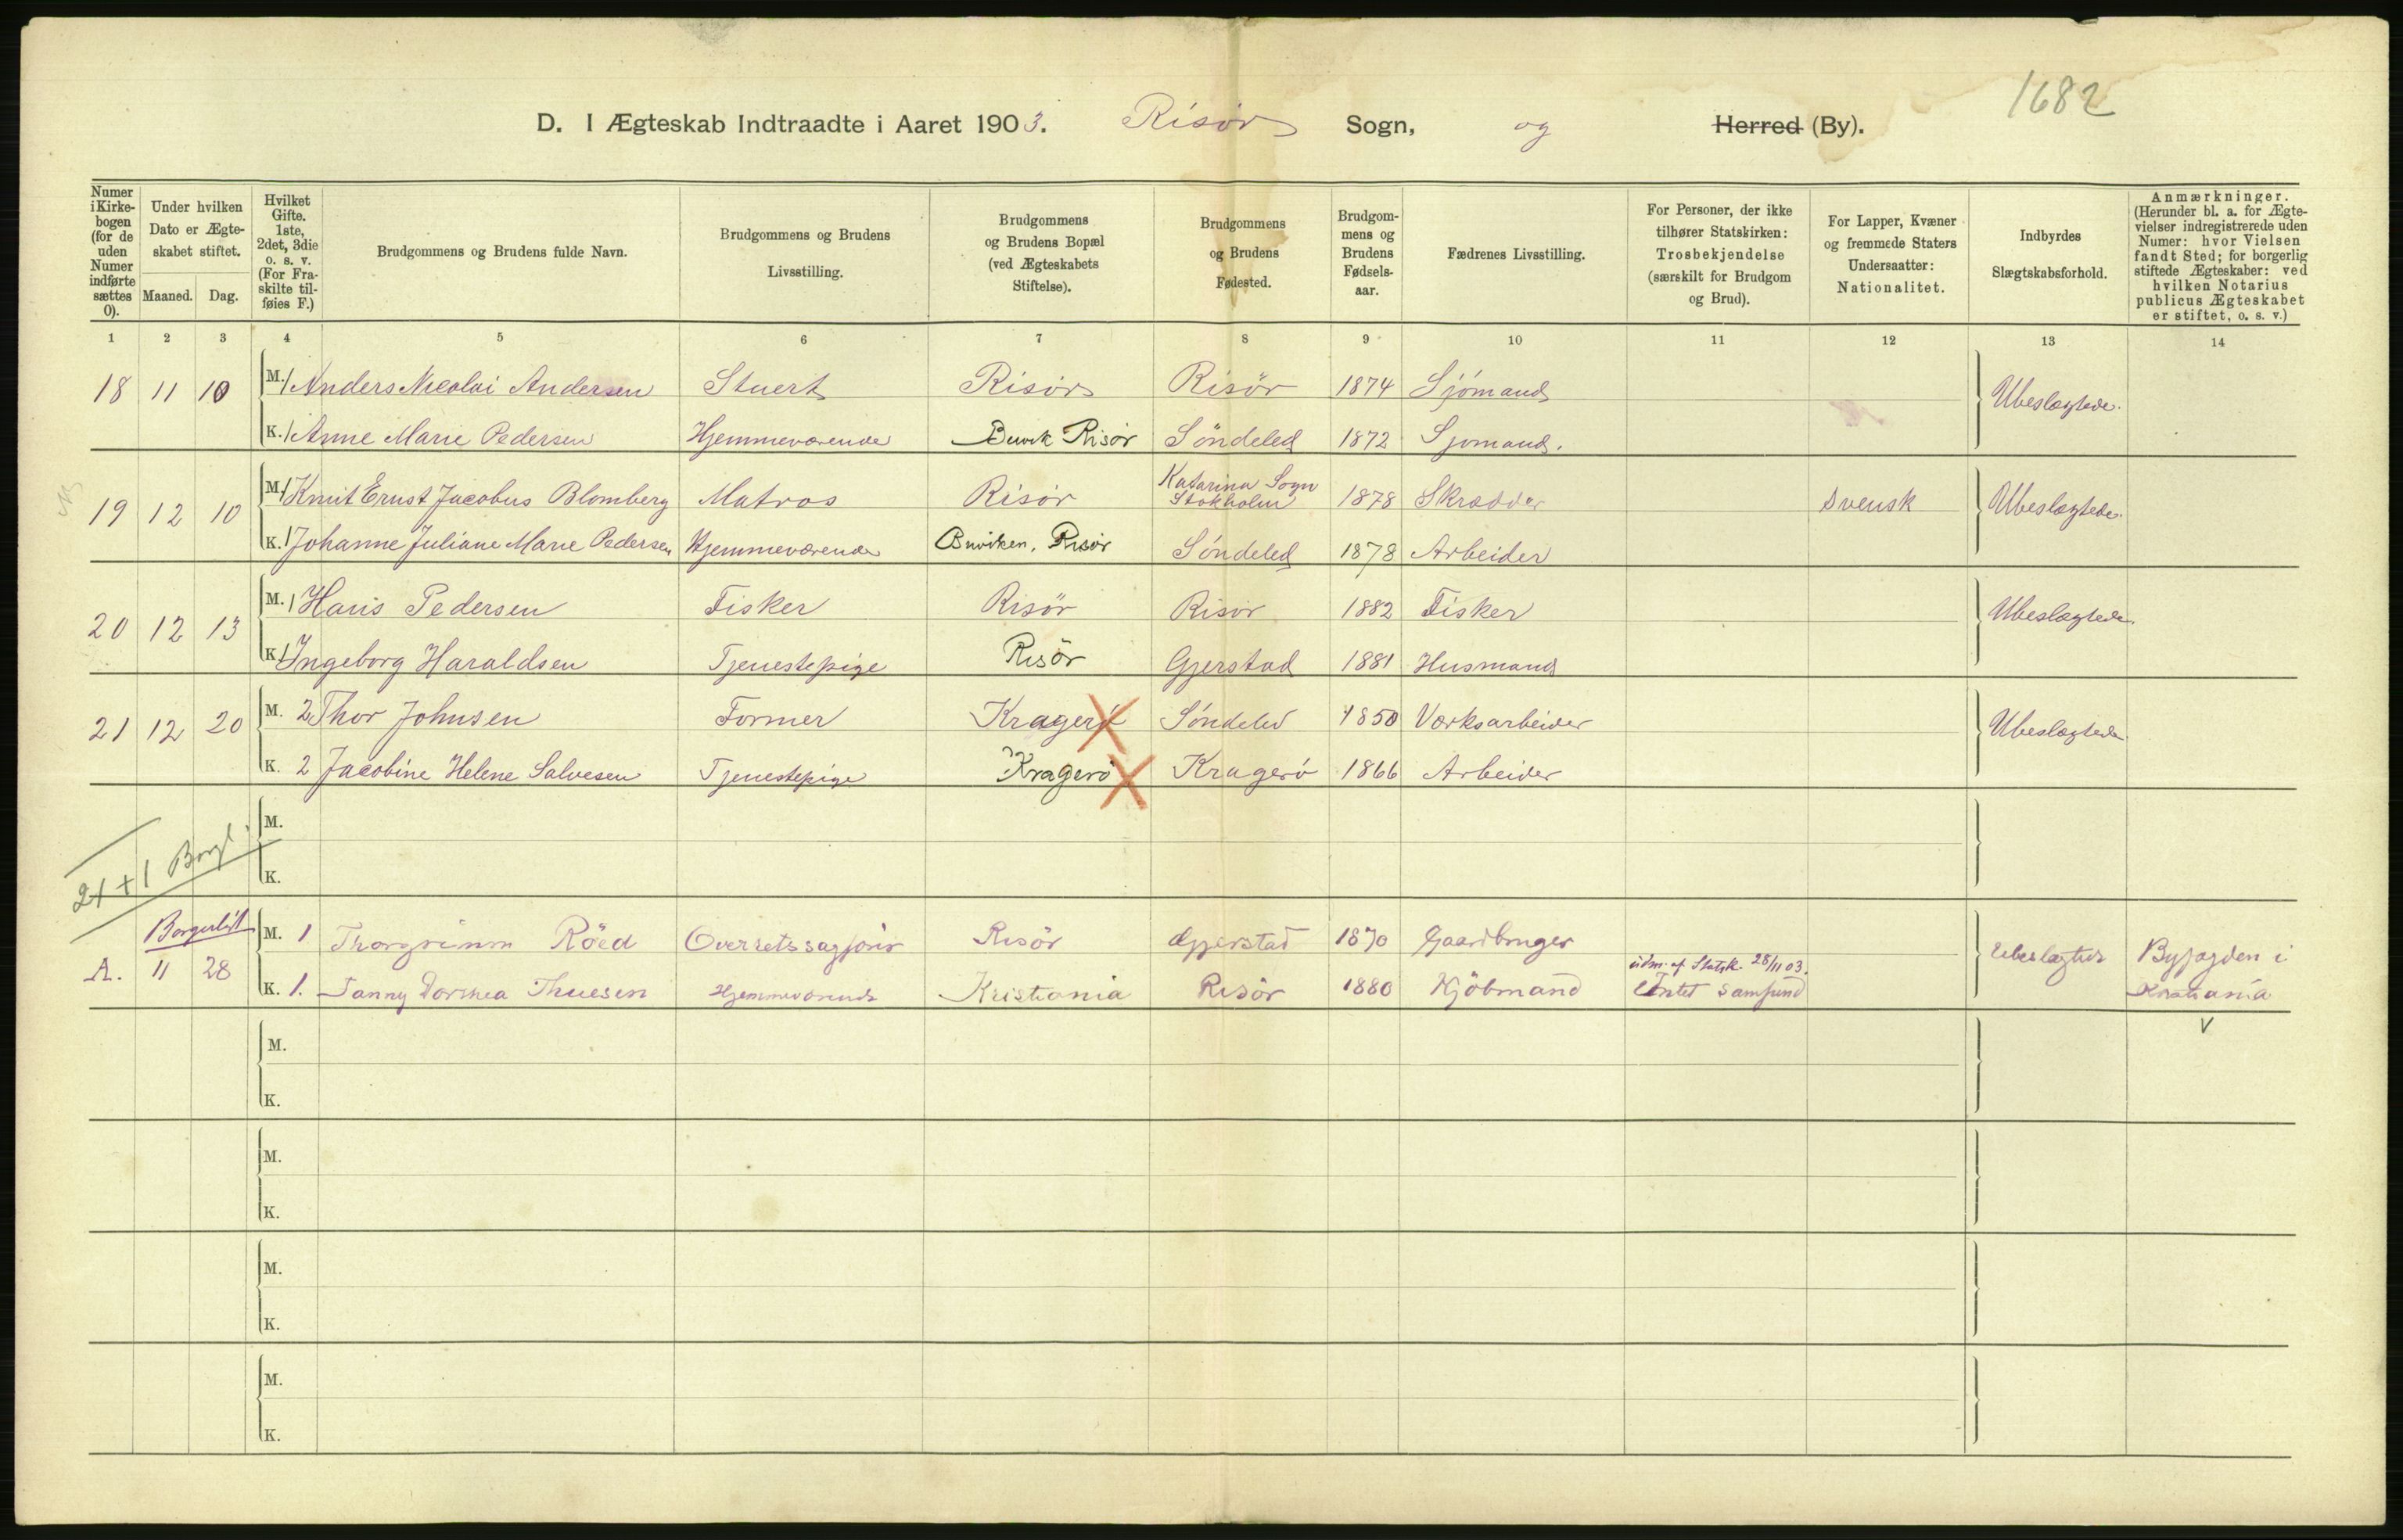 1682
D. I Ægteskab Indtraadte i Aaret 1903. Risør Sogn, og Herred (By).
Numer i Kirkebogen (for de uden Numer indførte sættes 0).
Under hvilken Dato er Ægteskabet stiftet.
Maaned. Dag.
Hvilket Gifte. 1ste, 2det, 3die o. s. v. (For Fraskilte tilføies F.)
Brudgommens og Brudens fulde Navn.
Brudgommens og Brudens Livsstilling.
Brudgommens og Brudens Bopæl (ved Ægteskabets Stiftelse).
Brudgommens og Brudens Fødested.
Brudgommens og Brudens Fødselsaar.
Fædrenes Livsstilling.
For Personer, der ikke tilhører Statskirken: Trosbekjendelse (særskilt for Brudgom og Brud).
For Lapper, Kvæner og fremmede Staters Undersaatter: Nationalitet.
Indbyrdes Slægtskabsforhold.
Anmærkninger. (Herunder bl. a. for Ægtevielser indregistrerede uden Numer: hvor Vielsen fandt Sted; for borgerlig stiftede Ægteskaber: ved hvilken Notarius publicus Ægteskabet er stiftet, o. s. v.)
1 2 3 4 5 6 7 8 9 10 11 12 13 14
18 11 10 M. 1 Anders Nicolai Andersen Stuert Risör Risör 1874 Sjómand Ubeslægtede.
K. 1 Anne Marie Pedersen Hjemmeværende Buvik Risör Söndeled 1872 Sjomand.
19 12 10 M. 1 Knut Ernst Jacobus Blomberg Matros Risör Katarina Sogn Stokholm 1878 Skrædder Svensk Ubeslægtede.
K. 1 Johanne Juliane Marie Pedersen Hjemmeværende Buviken, Risör Söndeled 1878 Arbeider
20 12 13 M. 1 Hans Pedersen Fisker Risör Risör 1882 Fisker Ubeslægtede.
K. 1 Ingeborg Haraldsen Tjenestepige Risör Gjerstad 1881 Husmand
21 12 20 M. 2 Thor Johnsen Former Kragerö Söndeled 1850 Værksarbeider Ubeslægtede.
K. 2 Jacobine Helene Salvesen Tjenestepige Kragerö Kragerö 1866 Arbeider
M.
21 + 1 Borgl.
K.
Borgerligt
A. 11 28 M. 1 Thorgrimm Röed Overretssagförer Risör Gjerstad 1870 Gaardbruger Ubeslægtede Byfogden i Kristiania
K. 1. Fanny Dorthea Thuesen Hjemmeværende Kristiania Risör 1880 Kjöbmand udm. af Statsk. 28/11 03. Intet samfund
V
M.
K.
M.
K.
M.
K.
M.
K.